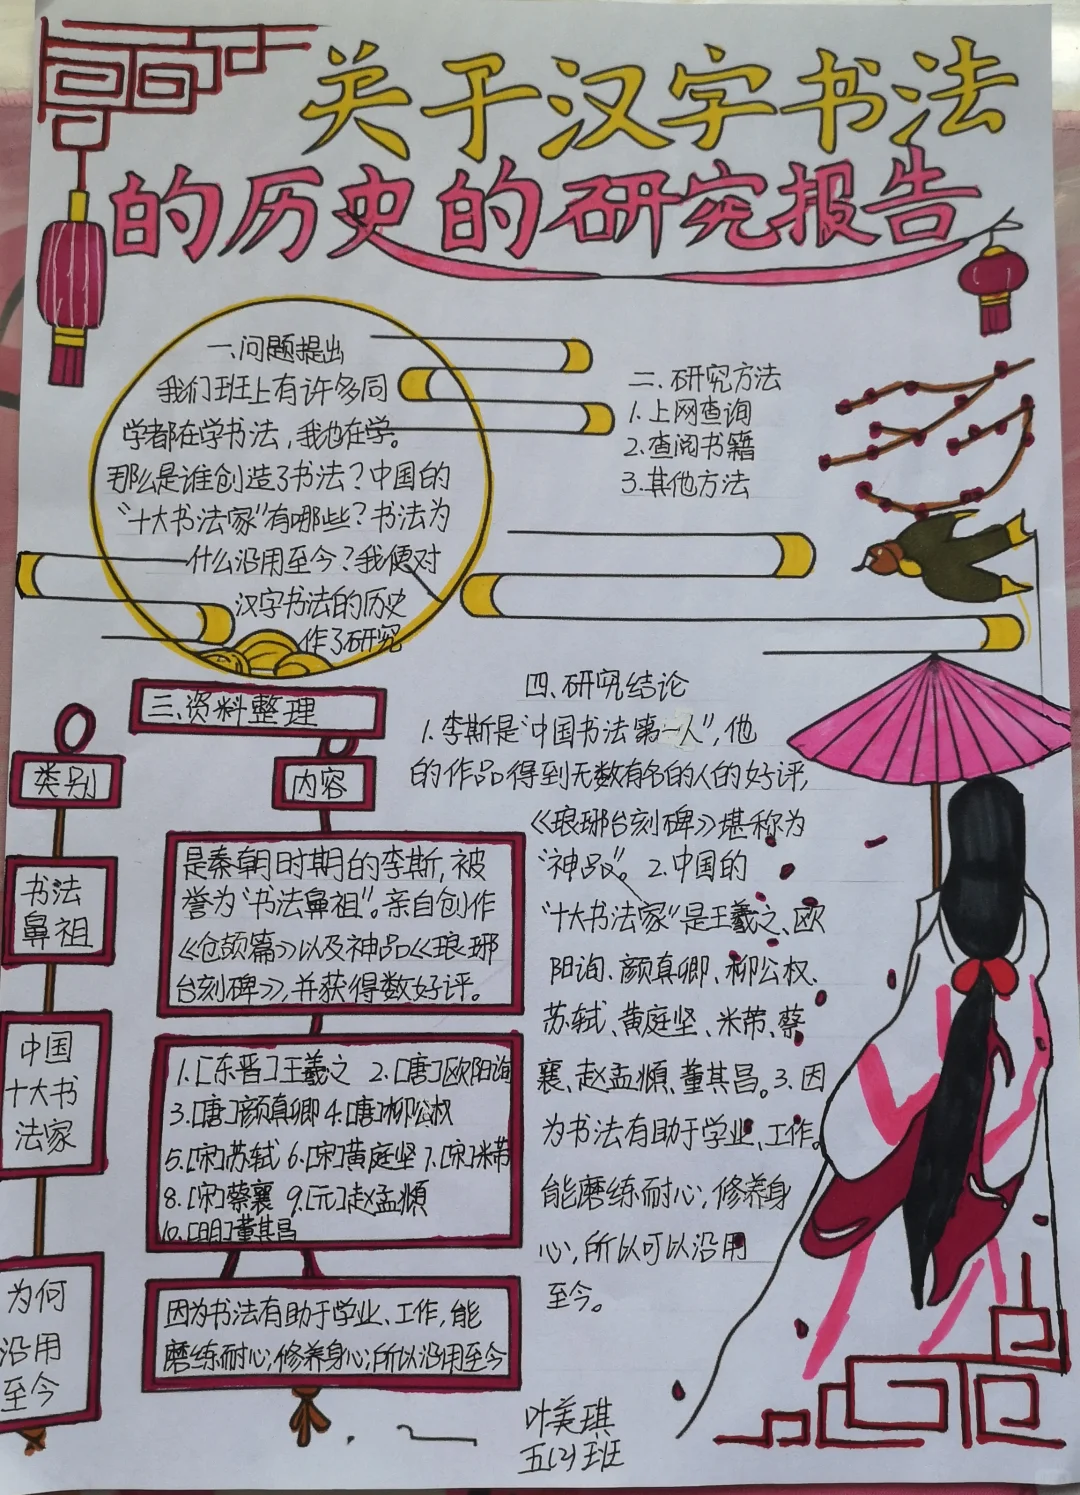 关于汉字书法
的历史的研究报告
一、问题提出
我们班上有许多同
学都在学书法，我也在学。
那么是谁创造了书法？中国的
“十大书法家”有哪些？书法为
什么沿用至今？我便对
汉字书法的历史
作了研究
二、研究方法
1.上网查询
2.查阅书籍
3.其他方法
三、资料整理
类别
内容
书法
鼻祖
是秦朝时期的李斯，被
誉为“书法鼻祖”。亲自创作
《仓颉篇》以及神品《琅琊
台刻碑》，并获得数好评。
中国
十大书
法家
1.[东晋]王羲之 2.[唐]欧阳询
3.[唐]颜真卿 4.[唐]柳公权
5.[宋]苏轼 6.[宋]黄庭坚 7.[宋]米芾
8.[宋]蔡襄 9.[元]赵孟頫
10.[明]董其昌
为何
沿用
至今
因为书法有助于学业、工作，能
磨练耐心；修养身心；所以沿用至今
四、研究结论
1.李斯是“中国书法第一人”，他
的作品得到无数有名的人的好评，
《琅琊台刻碑》堪称为
“神品”。2.中国的
“十大书法家”是王羲之、欧
阳询、颜真卿、柳公权、
苏轼、黄庭坚、米芾、蔡
襄、赵孟頫、董其昌。3.因
为书法有助于学业、工作。
能磨练耐心，修养身
心，所以可以沿用
至今。
叶美琪
五(2)班